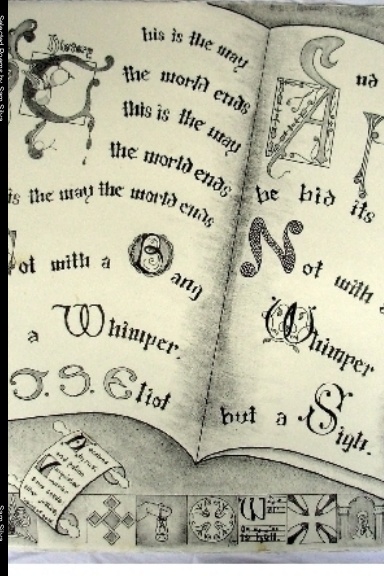 Selected Poems by Sam Silva
Sam Silva
History
his is the way
the world ends
this is the way
the world ends
is the way the world ends
ot with a Bang
a Whimper.
T. S. Eliot
And
he hid its
Not with
Whimper
but a Sigh.